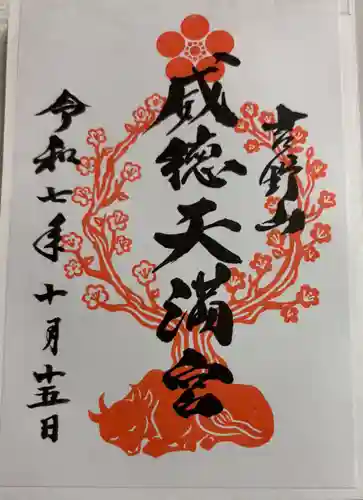 吉野山
威徳天満宮
令和七年十月十五日